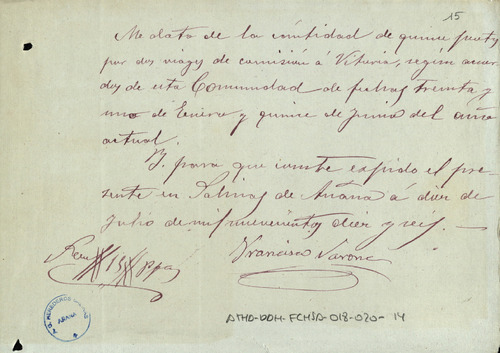 15
Me dato de la cantidad de quince pts
por dos viajes de comisión á Vitoria, según acuer-
dos de esta Comunidad de fechas treinta y
uno de Enero y quince de Junio del año
actual.
Y para que conste expido el pre-
sente en Salinas de Añana á diez de
Julio de mil novecientos diez y seis.
Son 15 Ptas
Francisco Varona
AÑANA
ATHA-DDH-FCHSA-018-020-14